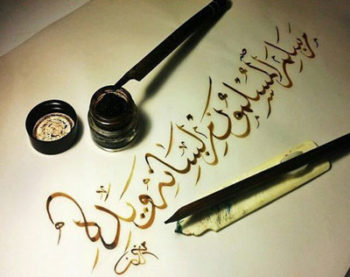 من سلم المسلمون من لسانه ويده